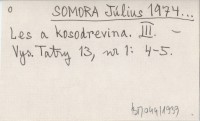 o SOMORA Július 1974...
Les a kosodrevina. III. –
Vys. Tatry 13, nr 1: 4-5.
044/1999